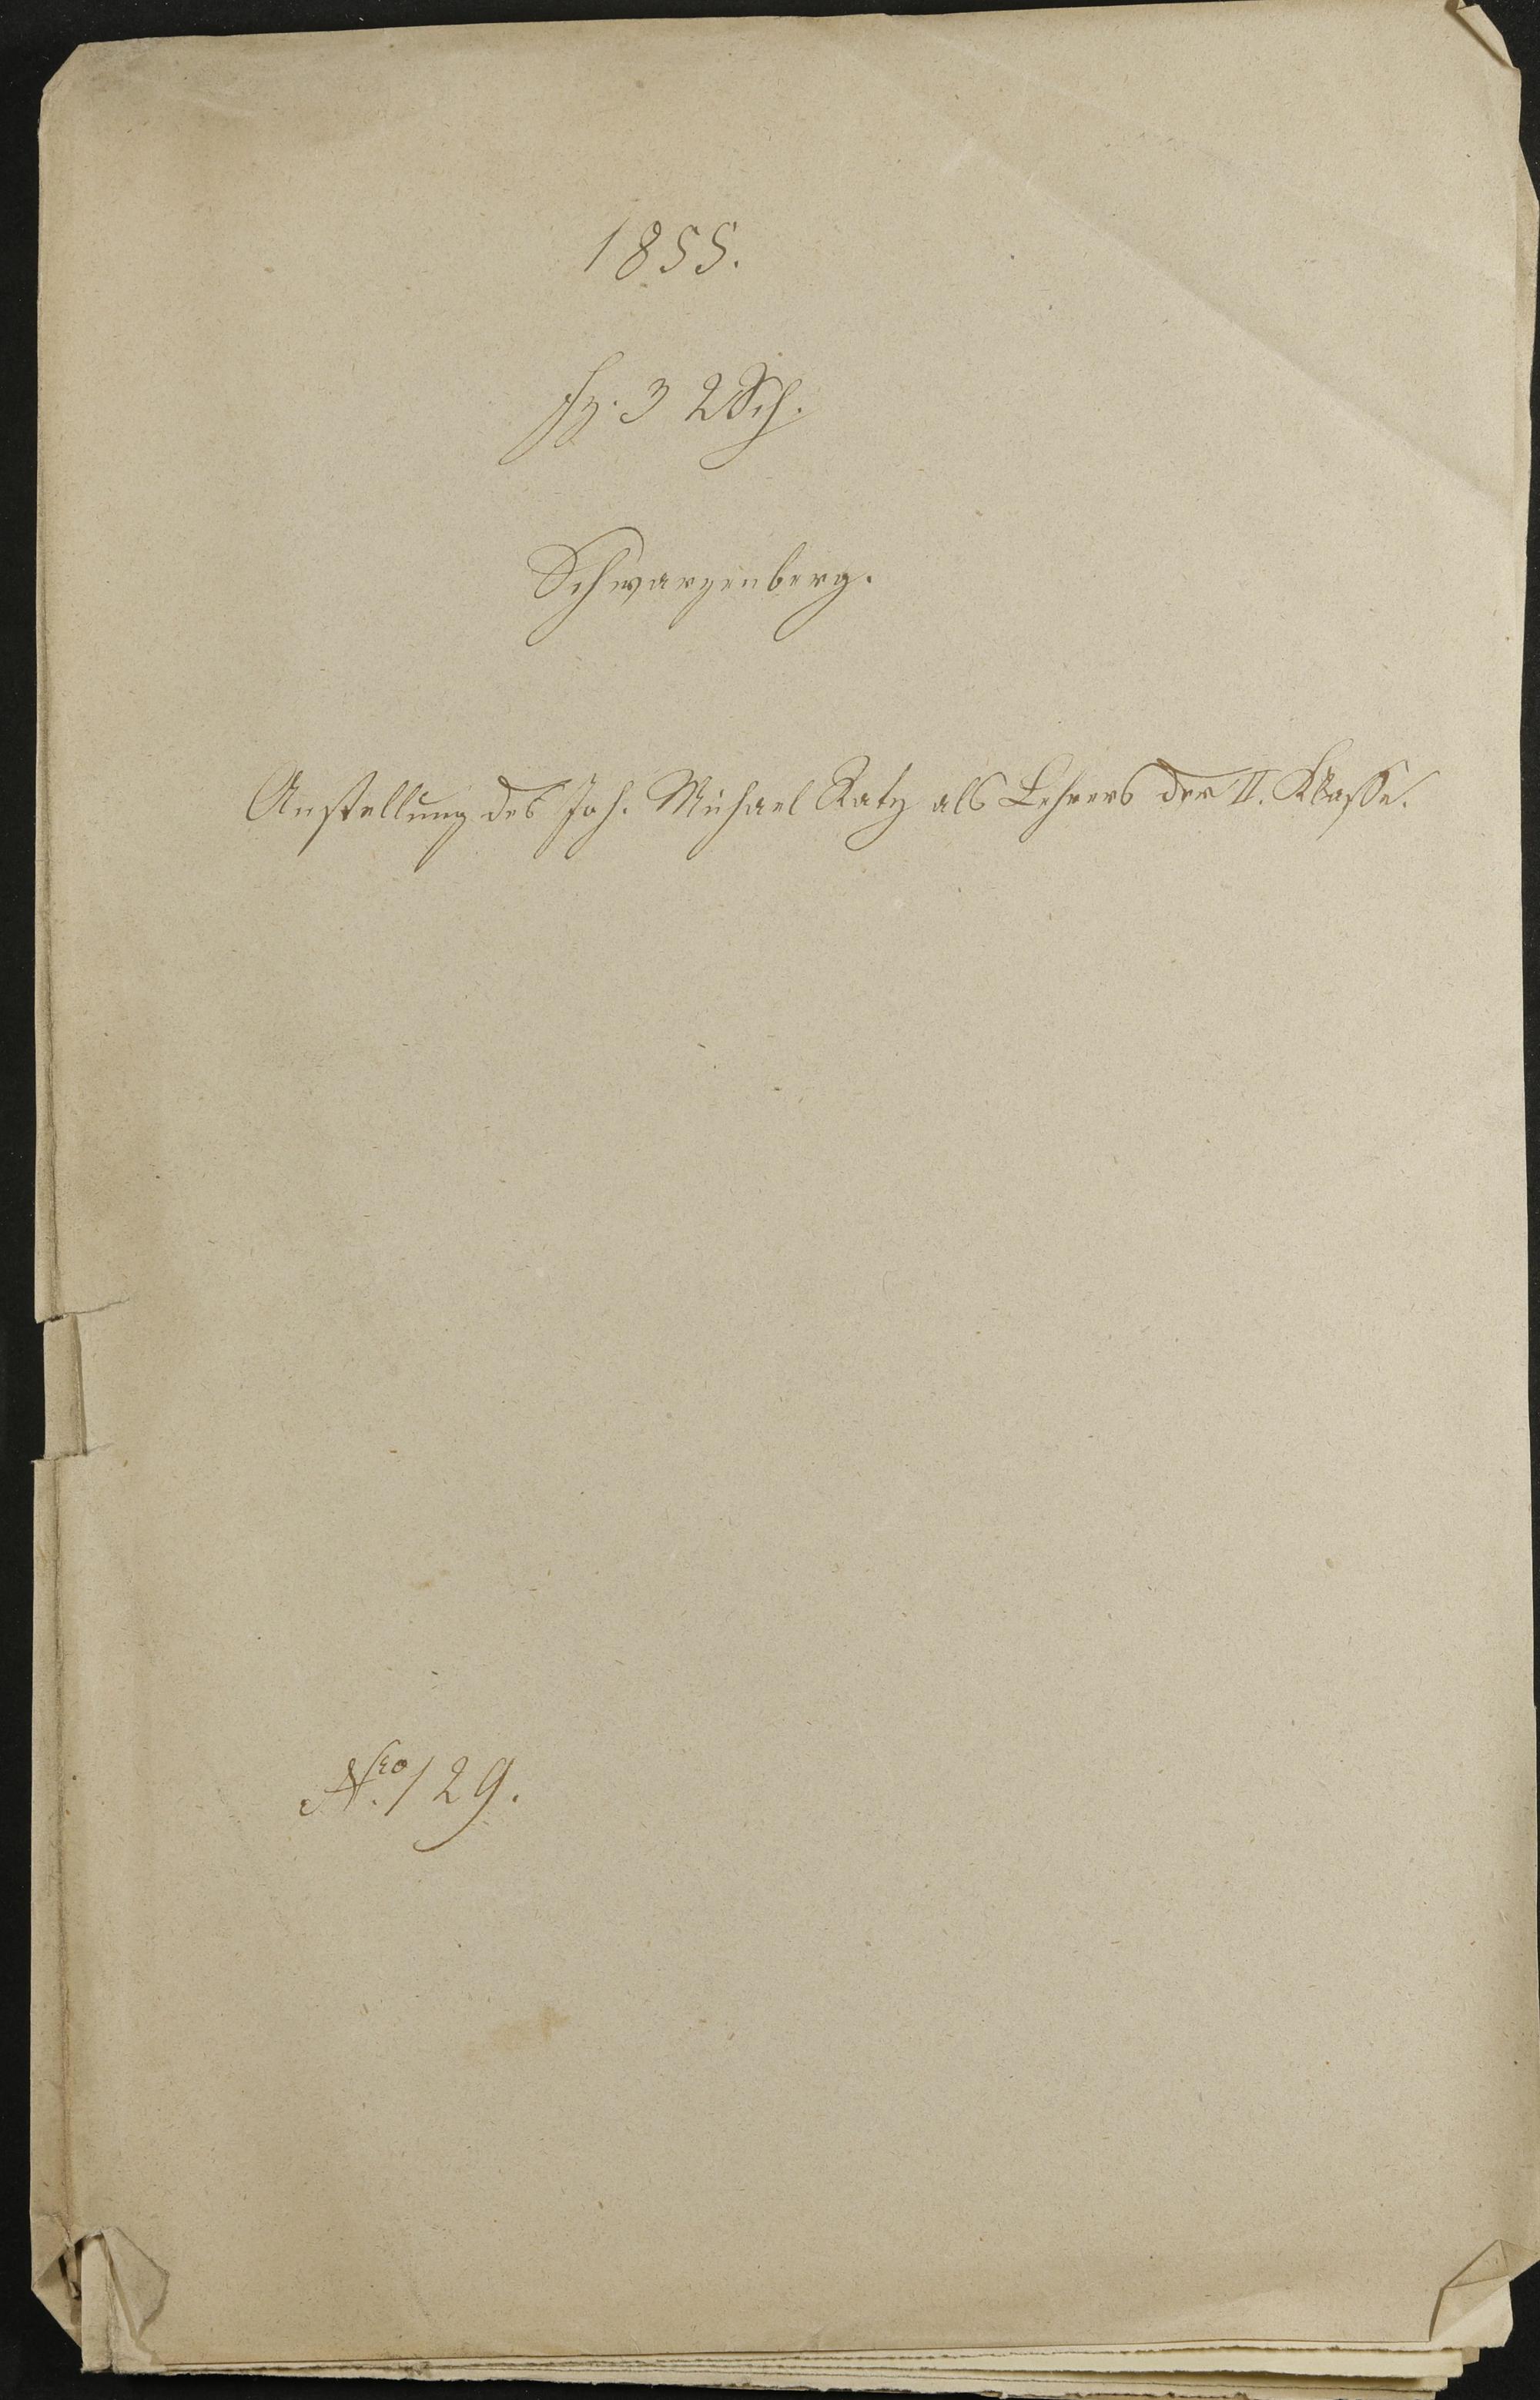 1855.
fz. 3 2 Sch.
Schwarzenberg.
Anstellung des Joh. Michael Ratz als Lehrers der II. Klasse.
Nro 129.